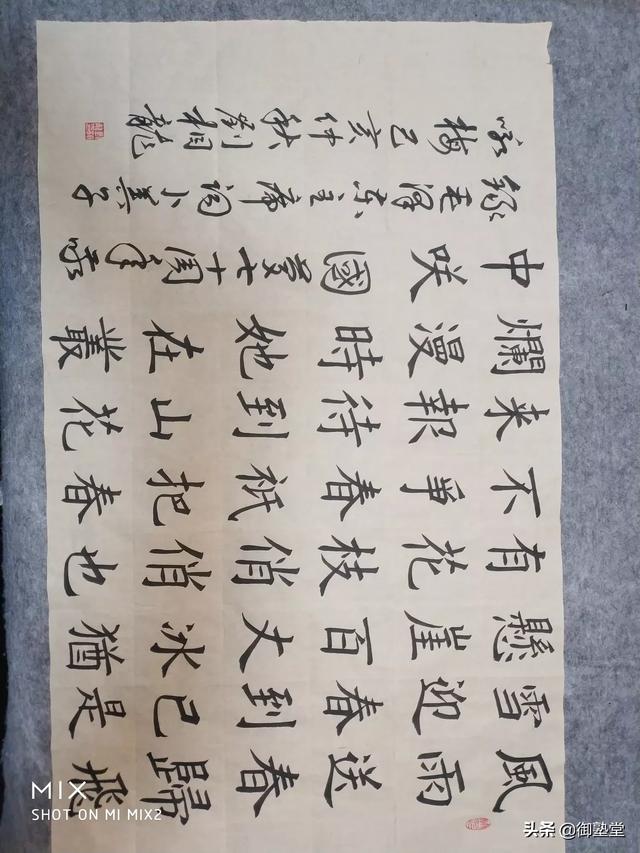 風雨送春歸飛
雪迎春到已是
懸崖百丈冰猶
有花枝俏俏也
不爭春祇把春
来報待到山花
爛漫時她在叢
中咲 國慶七十周年敬
錄毛澤東主席詞卜算子
咏梅己亥仲秋劉相龍
MIX
SHOT ON MI MIX2
头条 @御塾堂